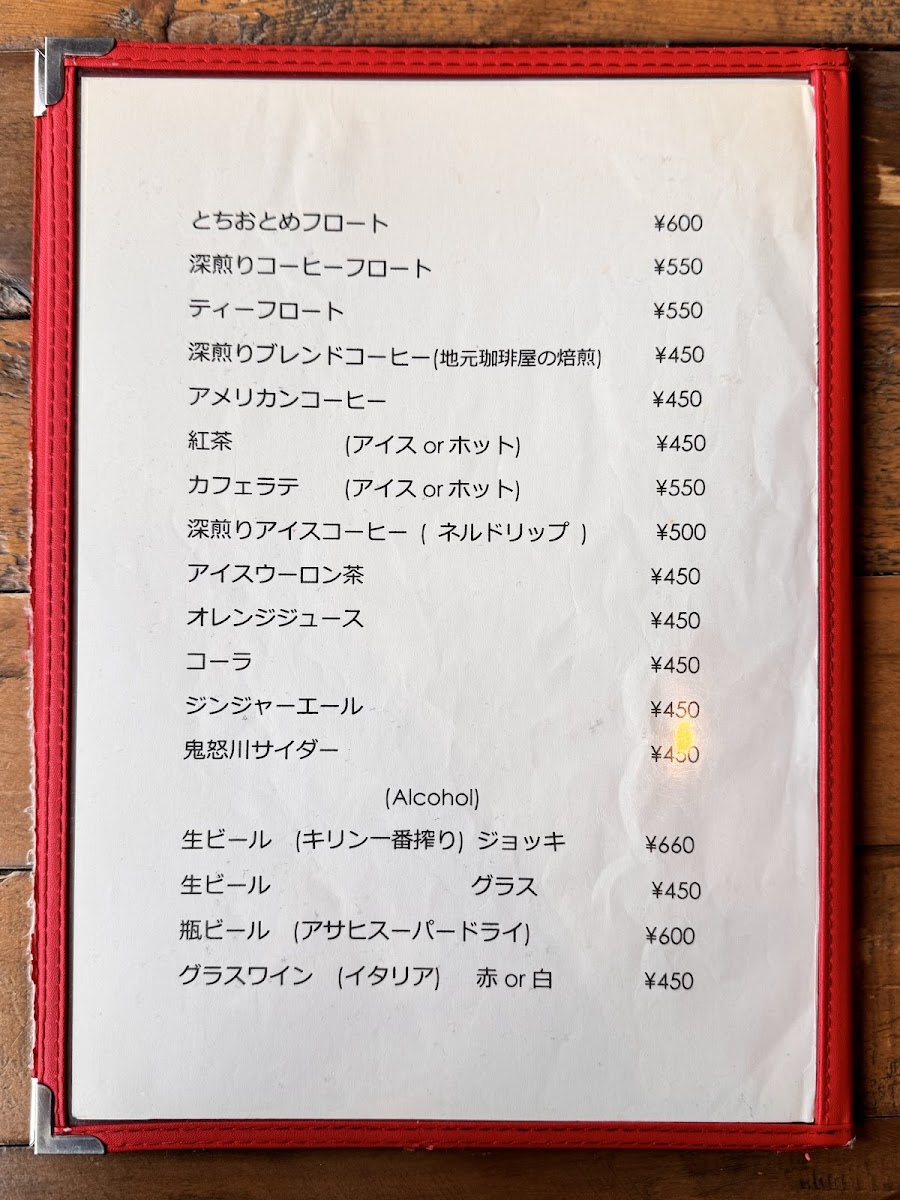 とちおとめフロート ¥600
深煎りコーヒーフロート ¥550
ティーフロート ¥550
深煎りブレンドコーヒー(地元珈琲屋の焙煎) ¥450
アメリカンコーヒー ¥450
紅茶 (アイス or ホット) ¥450
カフェラテ (アイス or ホット) ¥550
深煎りアイスコーヒー ( ネルドリップ ) ¥500
アイスウーロン茶 ¥450
オレンジジュース ¥450
コーラ ¥450
ジンジャーエール ¥450
鬼怒川サイダー ¥450
(Alcohol)
生ビール (キリン一番搾り) ジョッキ ¥660
生ビール グラス ¥450
瓶ビール (アサヒスーパードライ) ¥600
グラスワイン (イタリア) 赤 or 白 ¥450